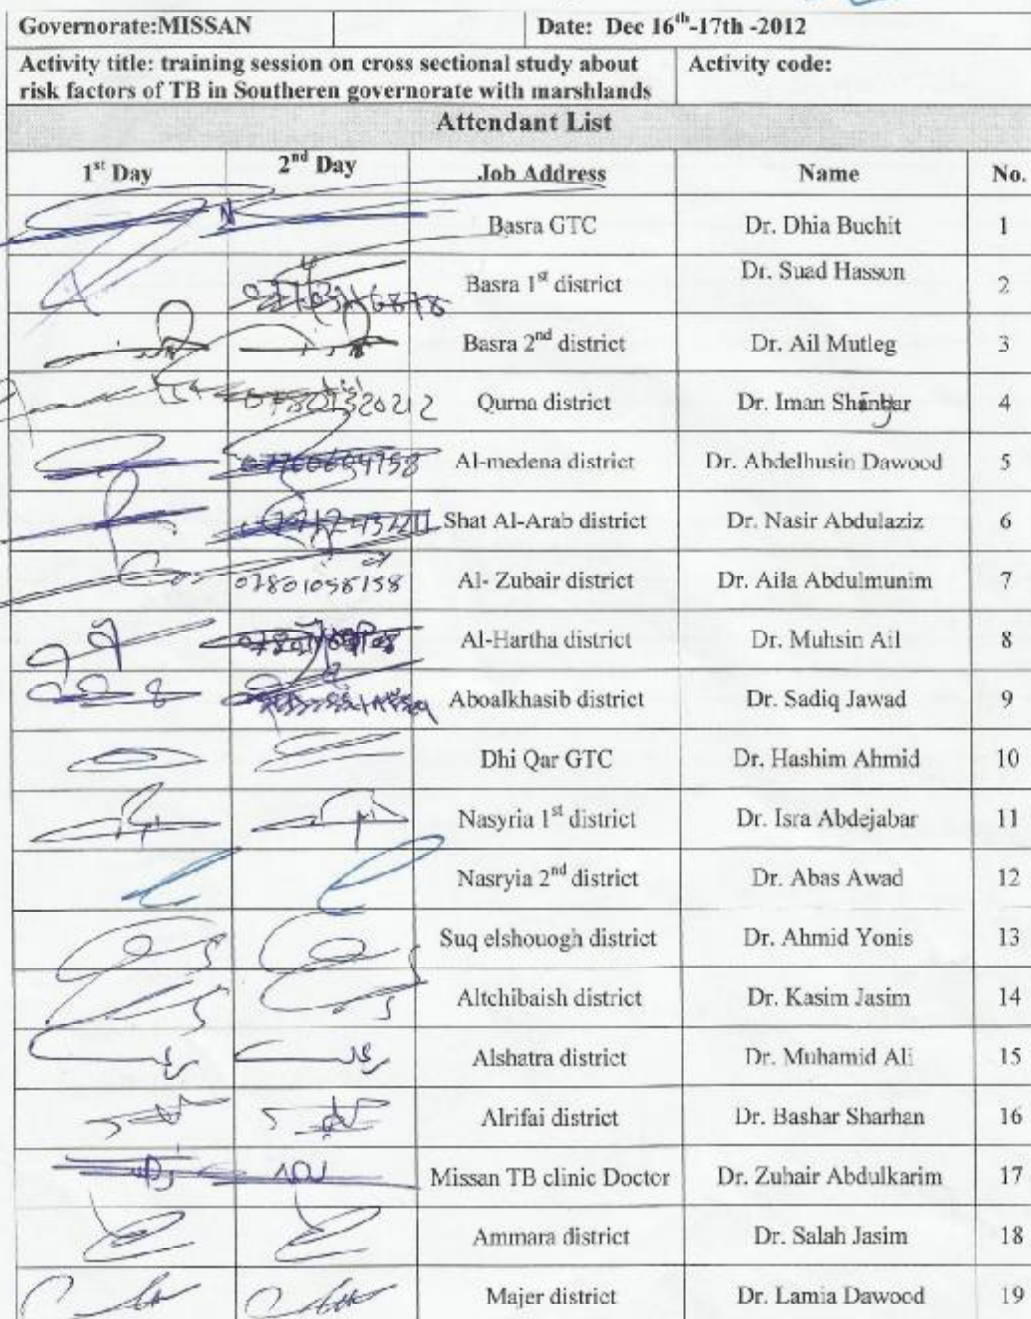 Governorate:MISSAN Date: Dec 16th-17th -2012
Activity title: training session on cross sectional study about Activity code:
risk factors of TB in Southeren governorate with marshlands
Attendant List
1st Day 2nd Day Job Address Name No.
Basra GTC Dr. Dhia Buchit 1
Basra 1st district Dr. Suad Hasson 2
Basra 2nd district Dr. Ail Mutleg 3
07801320212 Qurna district Dr. Iman 4
Al-medena district Dr. Abdelhusin Dawood 5
Shat Al-Arab district Dr. Nasir Abdulaziz 6
07801058158 Al- Zubair district Dr. Aila Abdulmunim 7
Al-Hartha district Dr. Muhsin Ail 8
Aboalkhasib district Dr. Sadiq Jawad 9
Dhi Qar GTC Dr. Hashim Ahmid 10
Nasyria 1st district Dr. Isra Abdejabar 11
Nasryia 2nd district Dr. Abas Awad 12
Suq elshouogh district Dr. Ahmid Yonis 13
Altchibaish district Dr. Kasim Jasim 14
Alshatra district Dr. Muhamid Ali 15
Alrifai district Dr. Bashar Sharhan 16
Missan TB clinic Doctor Dr. Zuhair Abdulkarim 17
Ammara district Dr. Salah Jasim 18
Majer district Dr. Lamia Dawood 19